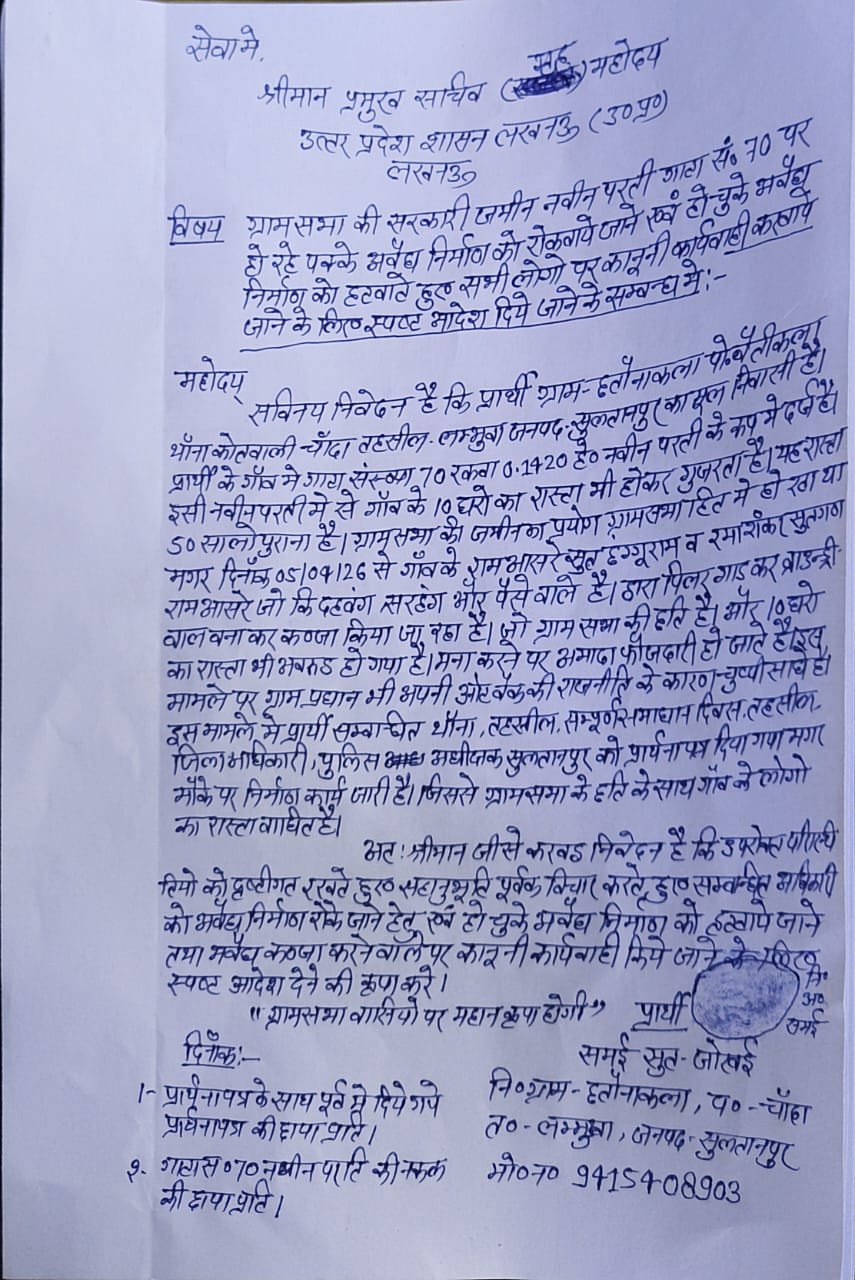 सेवा मे,
श्रीमान प्रमुख सचिव (गृह) महोदय
उत्तर प्रदेश शासन लखनऊ (उ०प्र०)
लखनऊ
विषय ग्रामसभा की सरकारी जमीन नवीन परती गाटा सं० 70 पर
हो रहे पक्के अवैद्य निर्माण को रोकवाये जाने एवं हो चुके अवैद्य
निर्माण को हटवाते हुए सभी लोगो पर कानूनी कार्यवाही करवाये
जाने के लिए स्पष्ट आदेश दिये जाने के सम्बन्ध मे:-
महोदय
सविनय निवेदन है कि प्रार्थी ग्राम- हतौनाकला पो०
थाँना कोतवाली चाँदा तहसील- लम्भुवा जनपद- सुलतानपुर का मूल निवासी है।
प्रार्थी के गाँव मे गाटा संख्या 70 रकवा 0.1420 हे० नवीन परती के रूप मे दर्ज है।
इसी नवीन परती मे से गाँव के 10 घरो का रास्ता भी होकर गुजरता है। यह रास्ता
50 सालो पुराना है। ग्रामसभा की जमीन का प्रयोग ग्रामसभा हित मे हो रहा था
मगर दिनाँक 05/04/26 से गाँव के राम आसरे सुत व रमाशंकर सुतगण
राम आसरे जो कि दबंग सरहंग और पैसे वाले है। द्वारा पिलर गाड कर बाउन्ड्री
वाल बना कर कब्जा किया जा रहा है। जो ग्राम सभा की क्षति है। और 10 घरो
का रास्ता भी अवरुद्ध हो गया है। मना करने पर अमादा फौजदारी हो जाते है। इस
मामले पर ग्राम प्रधान भी अपनी ओट बैंक की राजनीति के कारण चुप्पी साधे है।
इस मामले मे प्रार्थी सम्बन्धित थाँना, तहसील, सम्पूर्ण समाधान दिवस, तहसील,
जिला अधिकारी, पुलिस अधीक्षक सुलतानपुर को प्रार्थना पत्र दिया गया मगर
मौके पर निर्माण कार्य जारी है। जिससे ग्रामसभा के क्षति के साथ गाँव के लोगो
का रास्ता वाधित है।
अत: श्रीमान जी से करवद्ध निवेदन है कि उपरोक्त परिस्थि
तियो को दृष्टीगत रखते हुए सहानुभूति पूर्वक विचार करते हुए सम्बन्धित अधिकारी
को अवैद्य निर्माण रोके जाने हेतु एवं हो चुके अवैद्य निर्माण को हटवाये जाने
तथा अवैद्य कब्जा करने वाले पर कानूनी कार्यवाही किये जाने के लिए
स्पष्ट आदेश देने की कृपा करे।
"ग्रामसभा वासियो पर महान कृपा होगी" प्रार्थी नि० अ० समई
दिनाँक:- समई सुत- जोखई
1- प्रार्थनापत्र के साथ पूर्व मे दिये गये नि० ग्राम- हतौनाकला, प०- चाँदा
प्रार्थनापत्र की छाया प्रति। त०- लम्भुवा, जनपद- सुलतानपुर
२- गाटा स० 70 नवीन परति की नकल मो० न० 9415408903
की छाया प्रति।